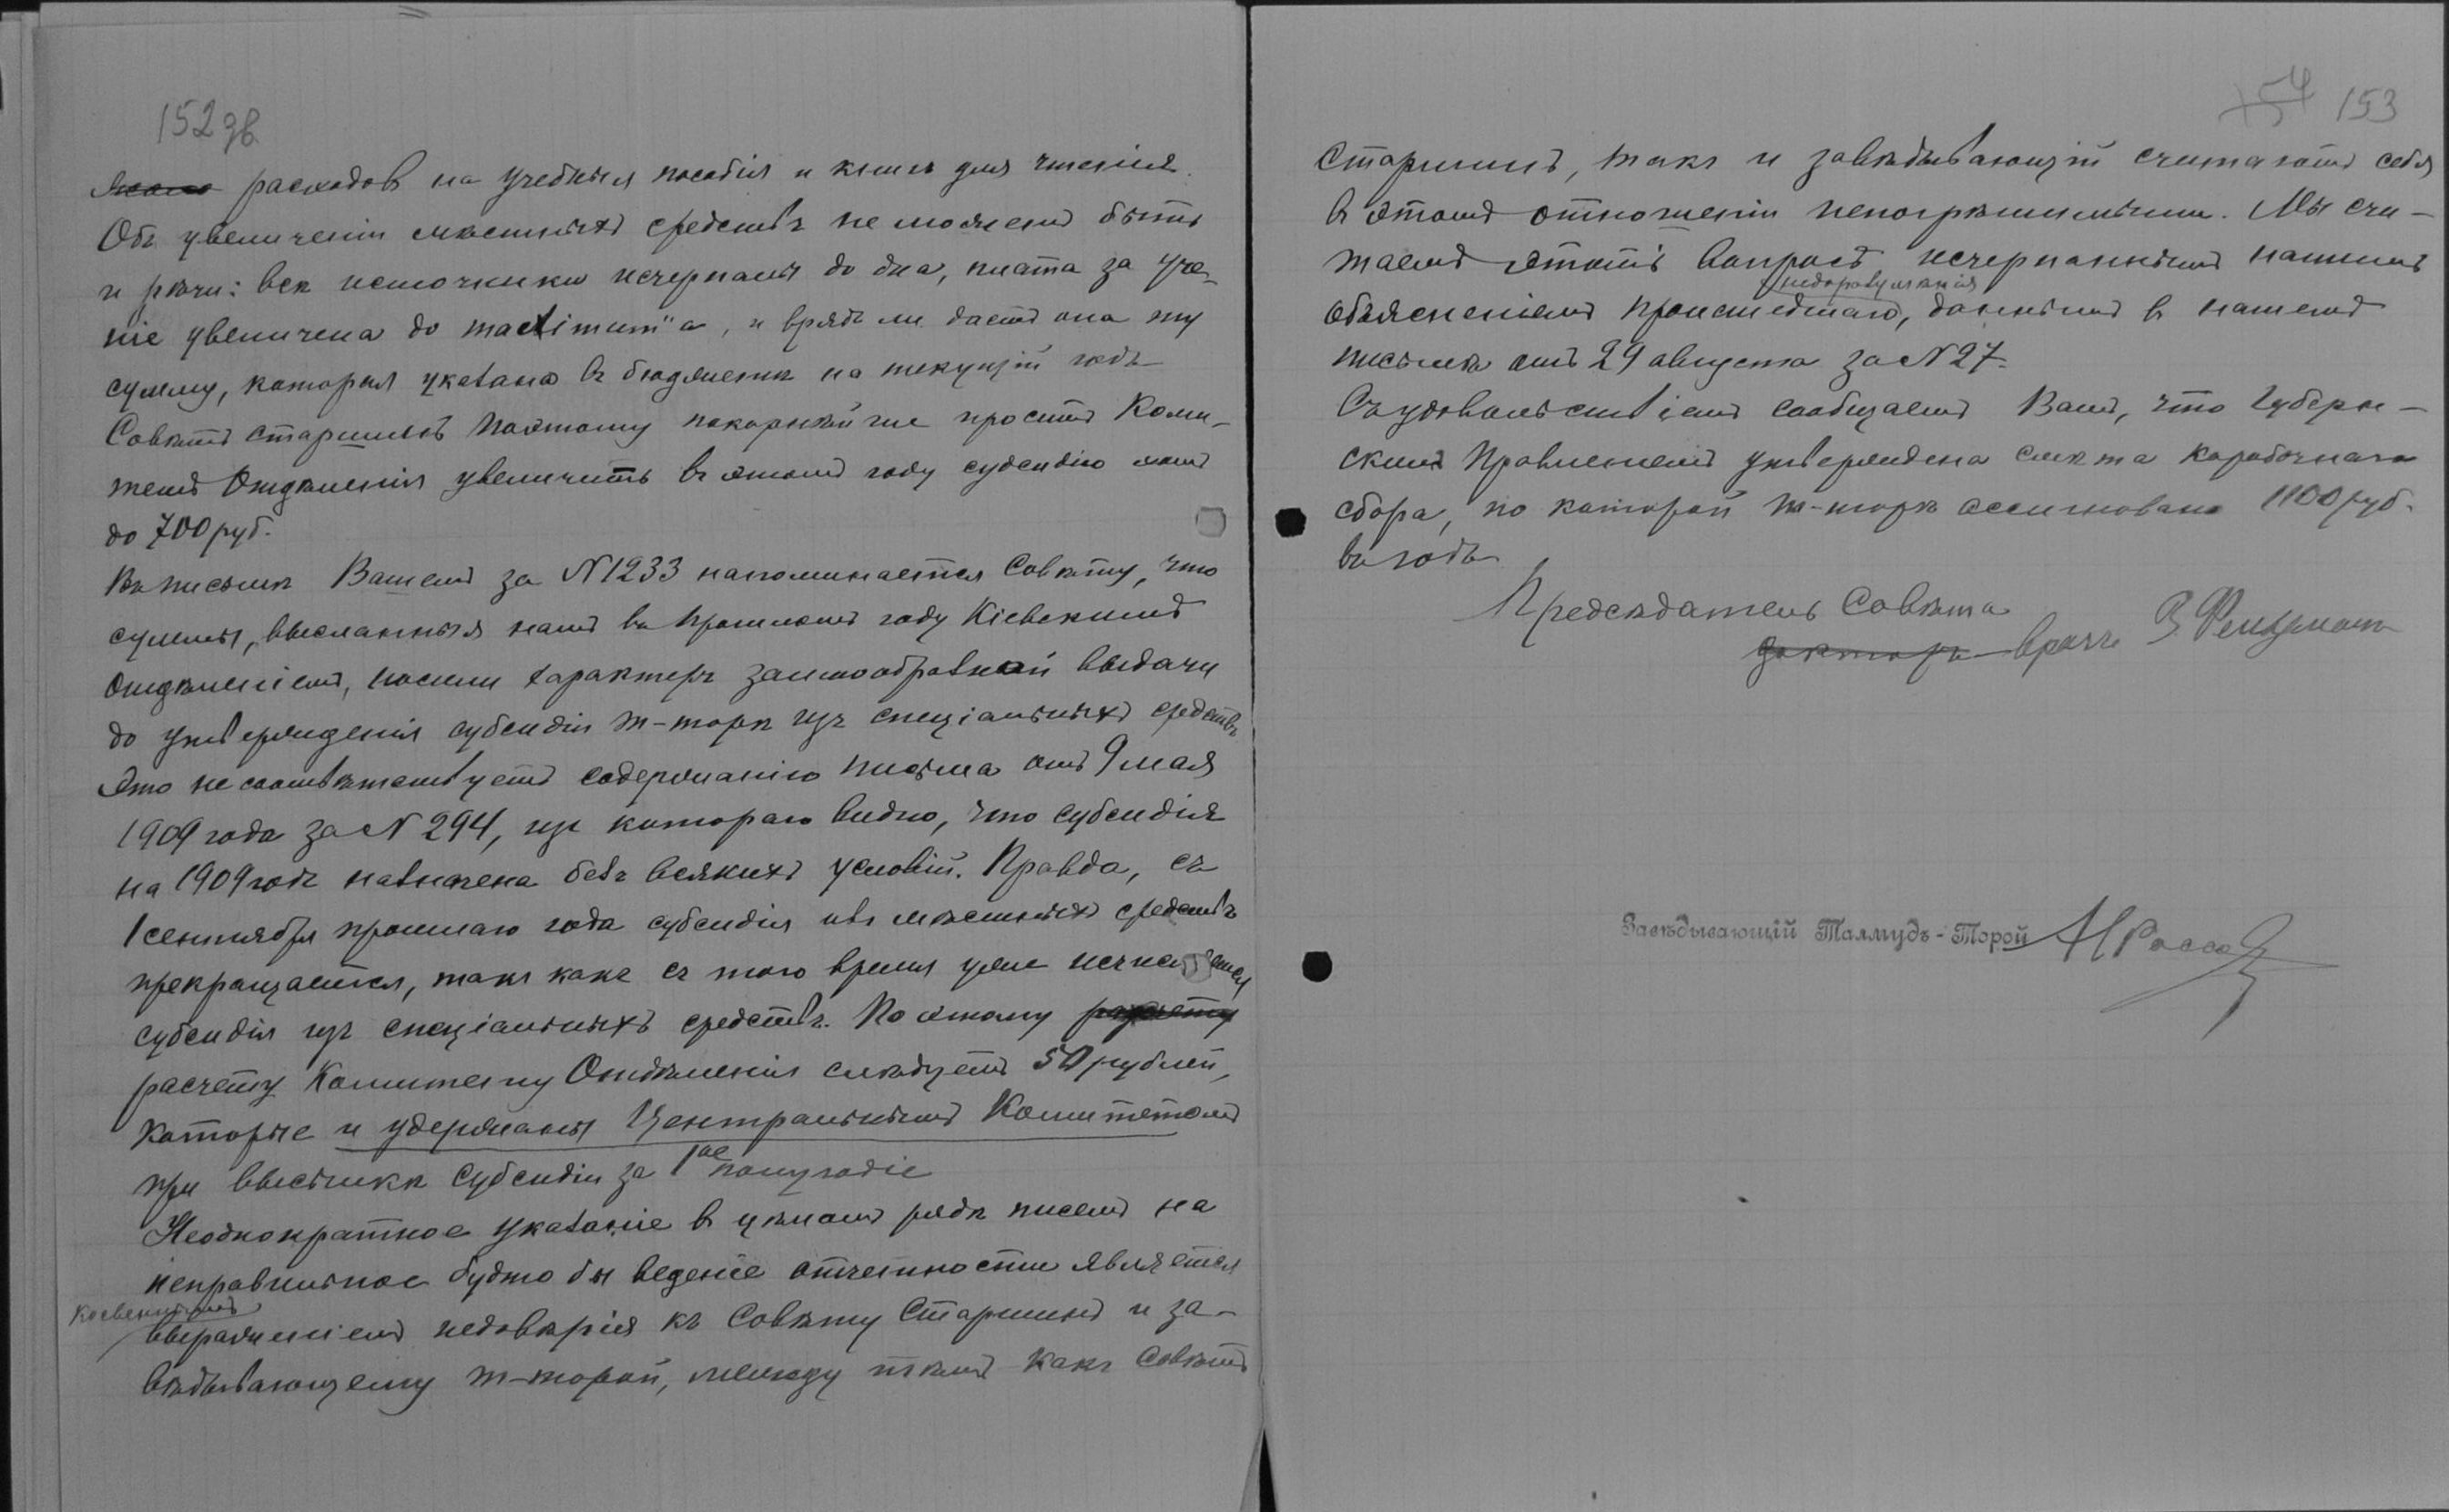 152 зв
расходовъ на учебныя пособія и книгъ для чтенія.
Объ увеличеніи мѣстныхъ средствъ не можетъ быть
и рѣчи: всѣ источники исчерпаны до дна, плата за уче-
ніе увеличена до maximum"а, и врядъ ли дастъ она ту
сумму, которая указана въ бюджетѣ на текущій годъ
Совѣтъ старшинъ поэтому покорнѣйше проситъ Коми-
тетъ Отдѣленія увеличить въ этомъ году субсидію намъ
до 700 руб.
Въ письмѣ Вашемъ за N 1233 напоминается Совѣту, что
суммы, высланныя намъ въ прошломъ году Кіевскимъ
отдѣленіемъ, носили характеръ заимообразной выдачи
до утвержденія субсидіи т-торѣ изъ спеціальныхъ средствъ
Это не соотвѣтствуетъ содержанію письма отъ 9 мая
1909 года за N 294, изъ котораго видно, что субсидія
на 1909 годъ назначена безъ всякихъ условій. Правда, съ
1 сентября прошлаго года субсидія изъ мѣстныхъ средствъ
прекращается, такъ какъ съ того время уже исчисляется
субсидія изъ спеціальныхъ средствъ. По этому расчету
расчету Комитету Отдѣленія слѣдуетъ 50 рублей,
которые и удержаны Центральнымъ Комитетомъ
при высылкѣ субсидіи за 1ое полугодіе
Неоднократное указаніе въ цѣломъ рядѣ писемъ на
неправильное будто бы веденіе отчетности является
косвеннымъ
выраженіемъ недовѣрія къ Совѣту Старшинъ и за-
вѣдывающему т-торой, между тѣмъ какъ Совѣтъ
154 153
Старшинъ, такъ и завѣдывающій считаютъ себя
въ этомъ отношеніи непогрѣшимыми. Мы счи-
таемъ этотъ вопросъ исчерпаннымъ нашимъ
недоразумѣнія
объясненіемъ происшедшаго, даннымъ въ нашемъ
письмѣ отъ 29 августа за N 27.
Съ удовольствіемъ сообщаемъ Вамъ, что Губерн-
скимъ Правленіемъ утверждена смѣта коробочнаго
сбора, по которой т-торѣ ассигновано 1100 руб.
въ годъ
Предсѣдатель Совѣта
докторъ врачъ
Завѣдывающій Талмудъ-Торой